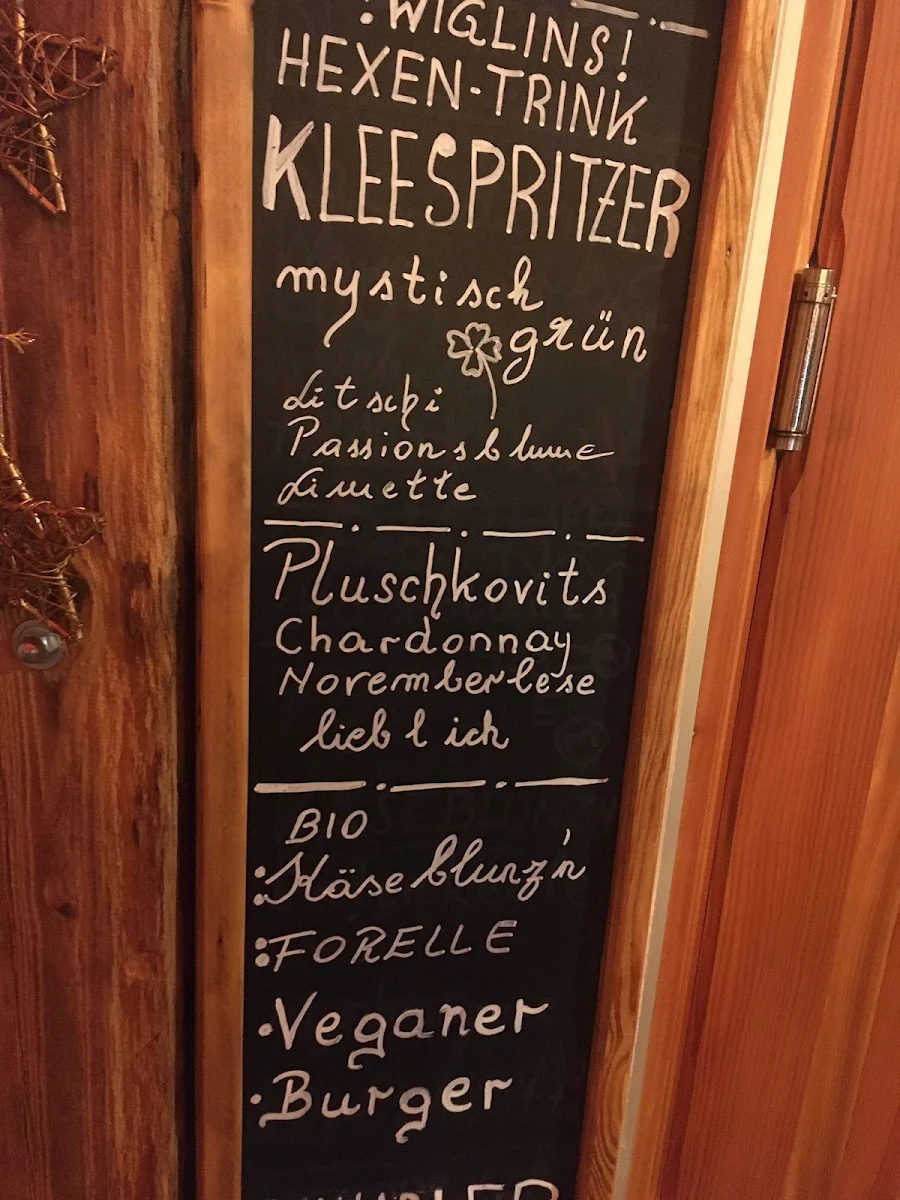 !WIGLINS!
HEXEN-TRINK
KLEESPRITZER
mystisch
grün
Litschi
Passionsblume
Limette
Pluschkovits
Chardonnay
Novemberlese
lieblich
BIO
:Käseblunz'n
:FORELLE
·Veganer
·Burger